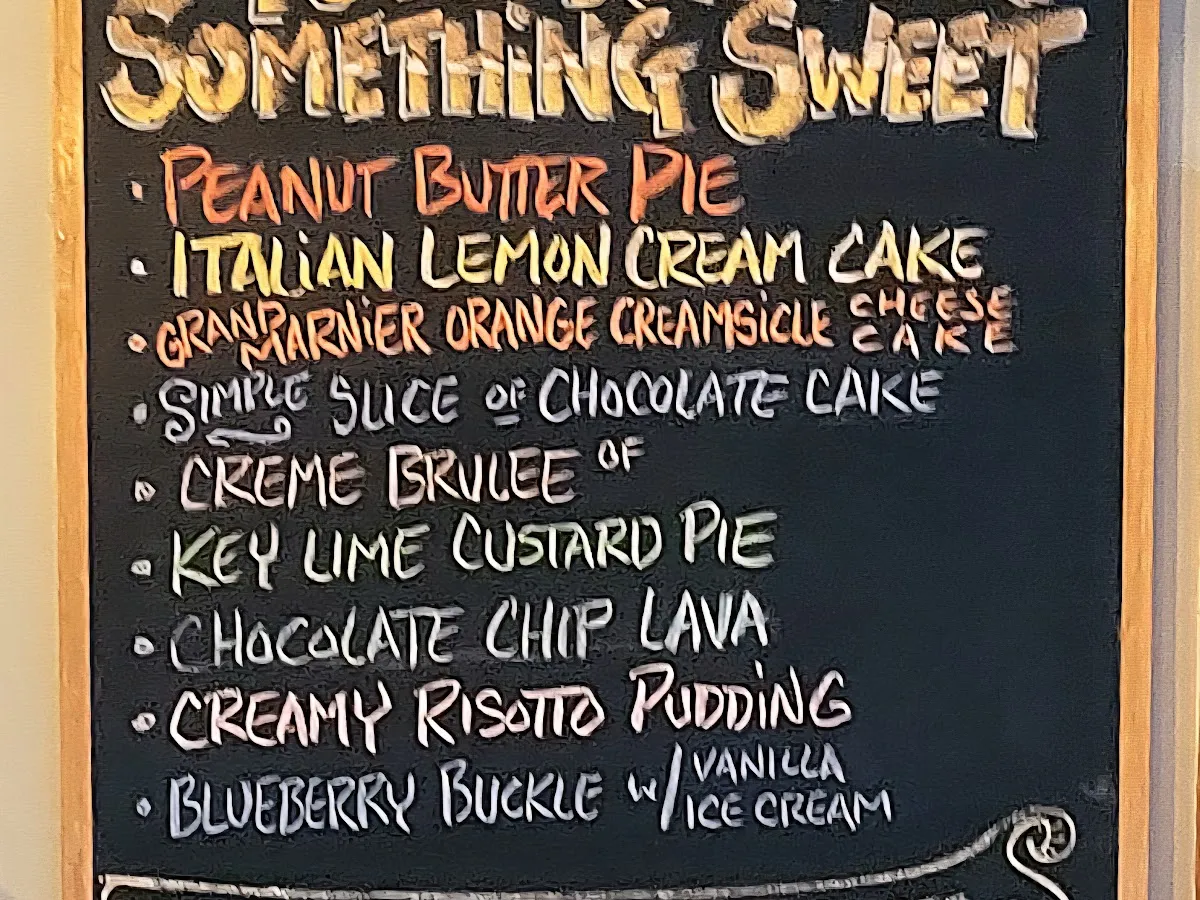 SOMETHING SWEET
• PEANUT BUTTER PIE
• ITALIAN LEMON CREAM CAKE
• GRAND MARNIER ORANGE CREAMSICLE CHEESE CAKE
• SIMPLE SLICE OF CHOCOLATE CAKE
• CREME BRULEE OF
• KEY LIME CUSTARD PIE
• CHOCOLATE CHIP LAVA
• CREAMY RISOTTO PUDDING
• BLUEBERRY BUCKLE W/ VANILLA ICE CREAM